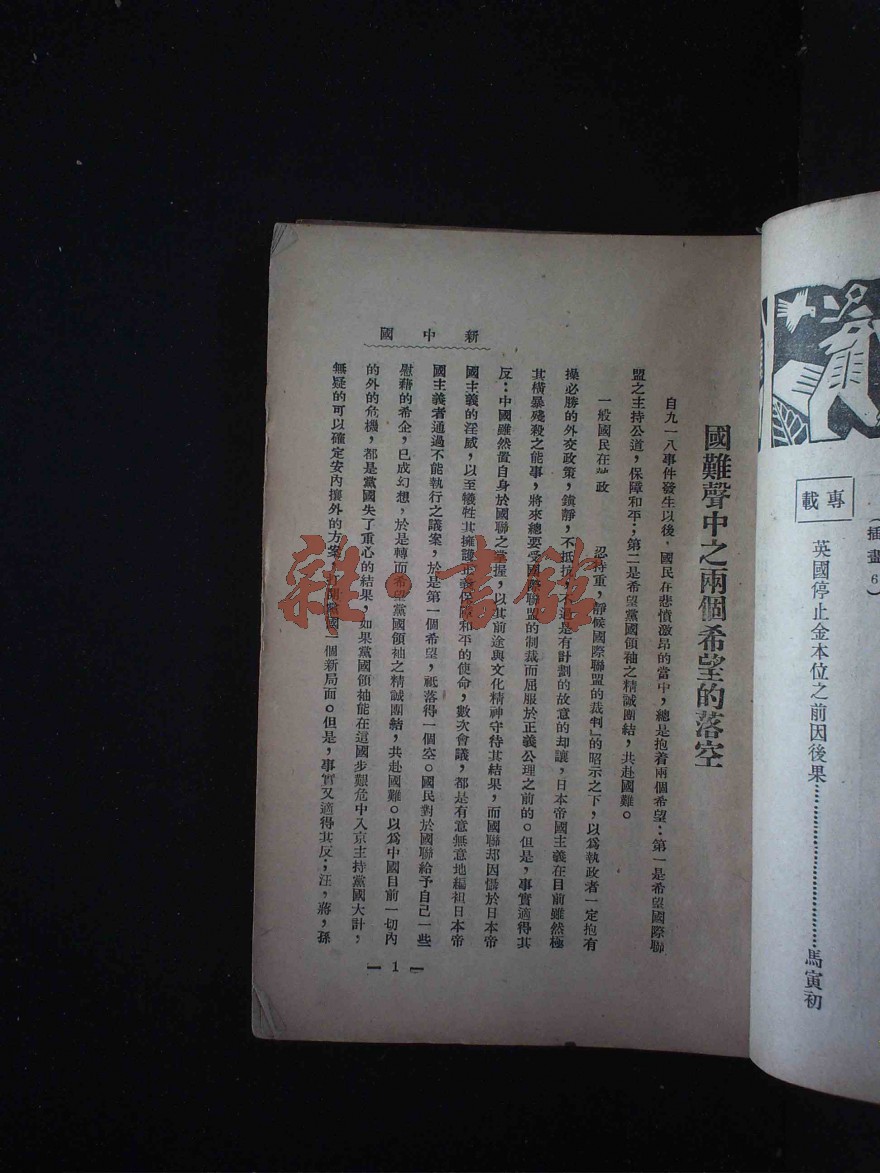 專載
英國停止金本位之前因後果……………………………馬寅初
(插畫6)
國難聲中之兩個希望的落空
自九一八事件發生以後,國民在悲憤激昂的當中,總是抱着兩個希望:第一是希望國際聯
盟之主持公道,保障和平;第二是希望黨國領袖之精誠團結,共赴國難。
一般國民在 政 忍持重,靜候國際聯盟的裁判」的昭示之下,以爲執政者一定抱有
操必勝的外交政策,鎮靜,不抵抗, 過是有計劃的故意的却讓,日本帝國主義在目前雖然極
其橫暴殘殺之能事,將來總要受國際聯盟的制裁而屈服於正義公理之前的。但是,事實適得其
反:中國雖然置自身於國聯之掌握,以其前途與文化精神守待其結果,而國聯却因懾於日本帝
國主義的淫威,以至犧牲其擁護正義保障和平的使命,數次會議,都是有意無意地編袒日本帝
國主義者通過不能執行之議案,於是第一個希望,祇落得一個空。國民對於國聯給予自己一些
慰藉的希企,已成幻想,於是轉而希望黨國領袖之精誠團結,共赴國難。以爲中國目前一切內
的外的危機,都是黨國失了重心的結果,如果黨國領袖能在這國步艱危中入京主持黨國大計,
無疑的可以確定安內攘外的方案, 開黨國一個新局面。但是,事實又適得其反;汪,蔣,孫
新中國
— 1 —
雜·書館